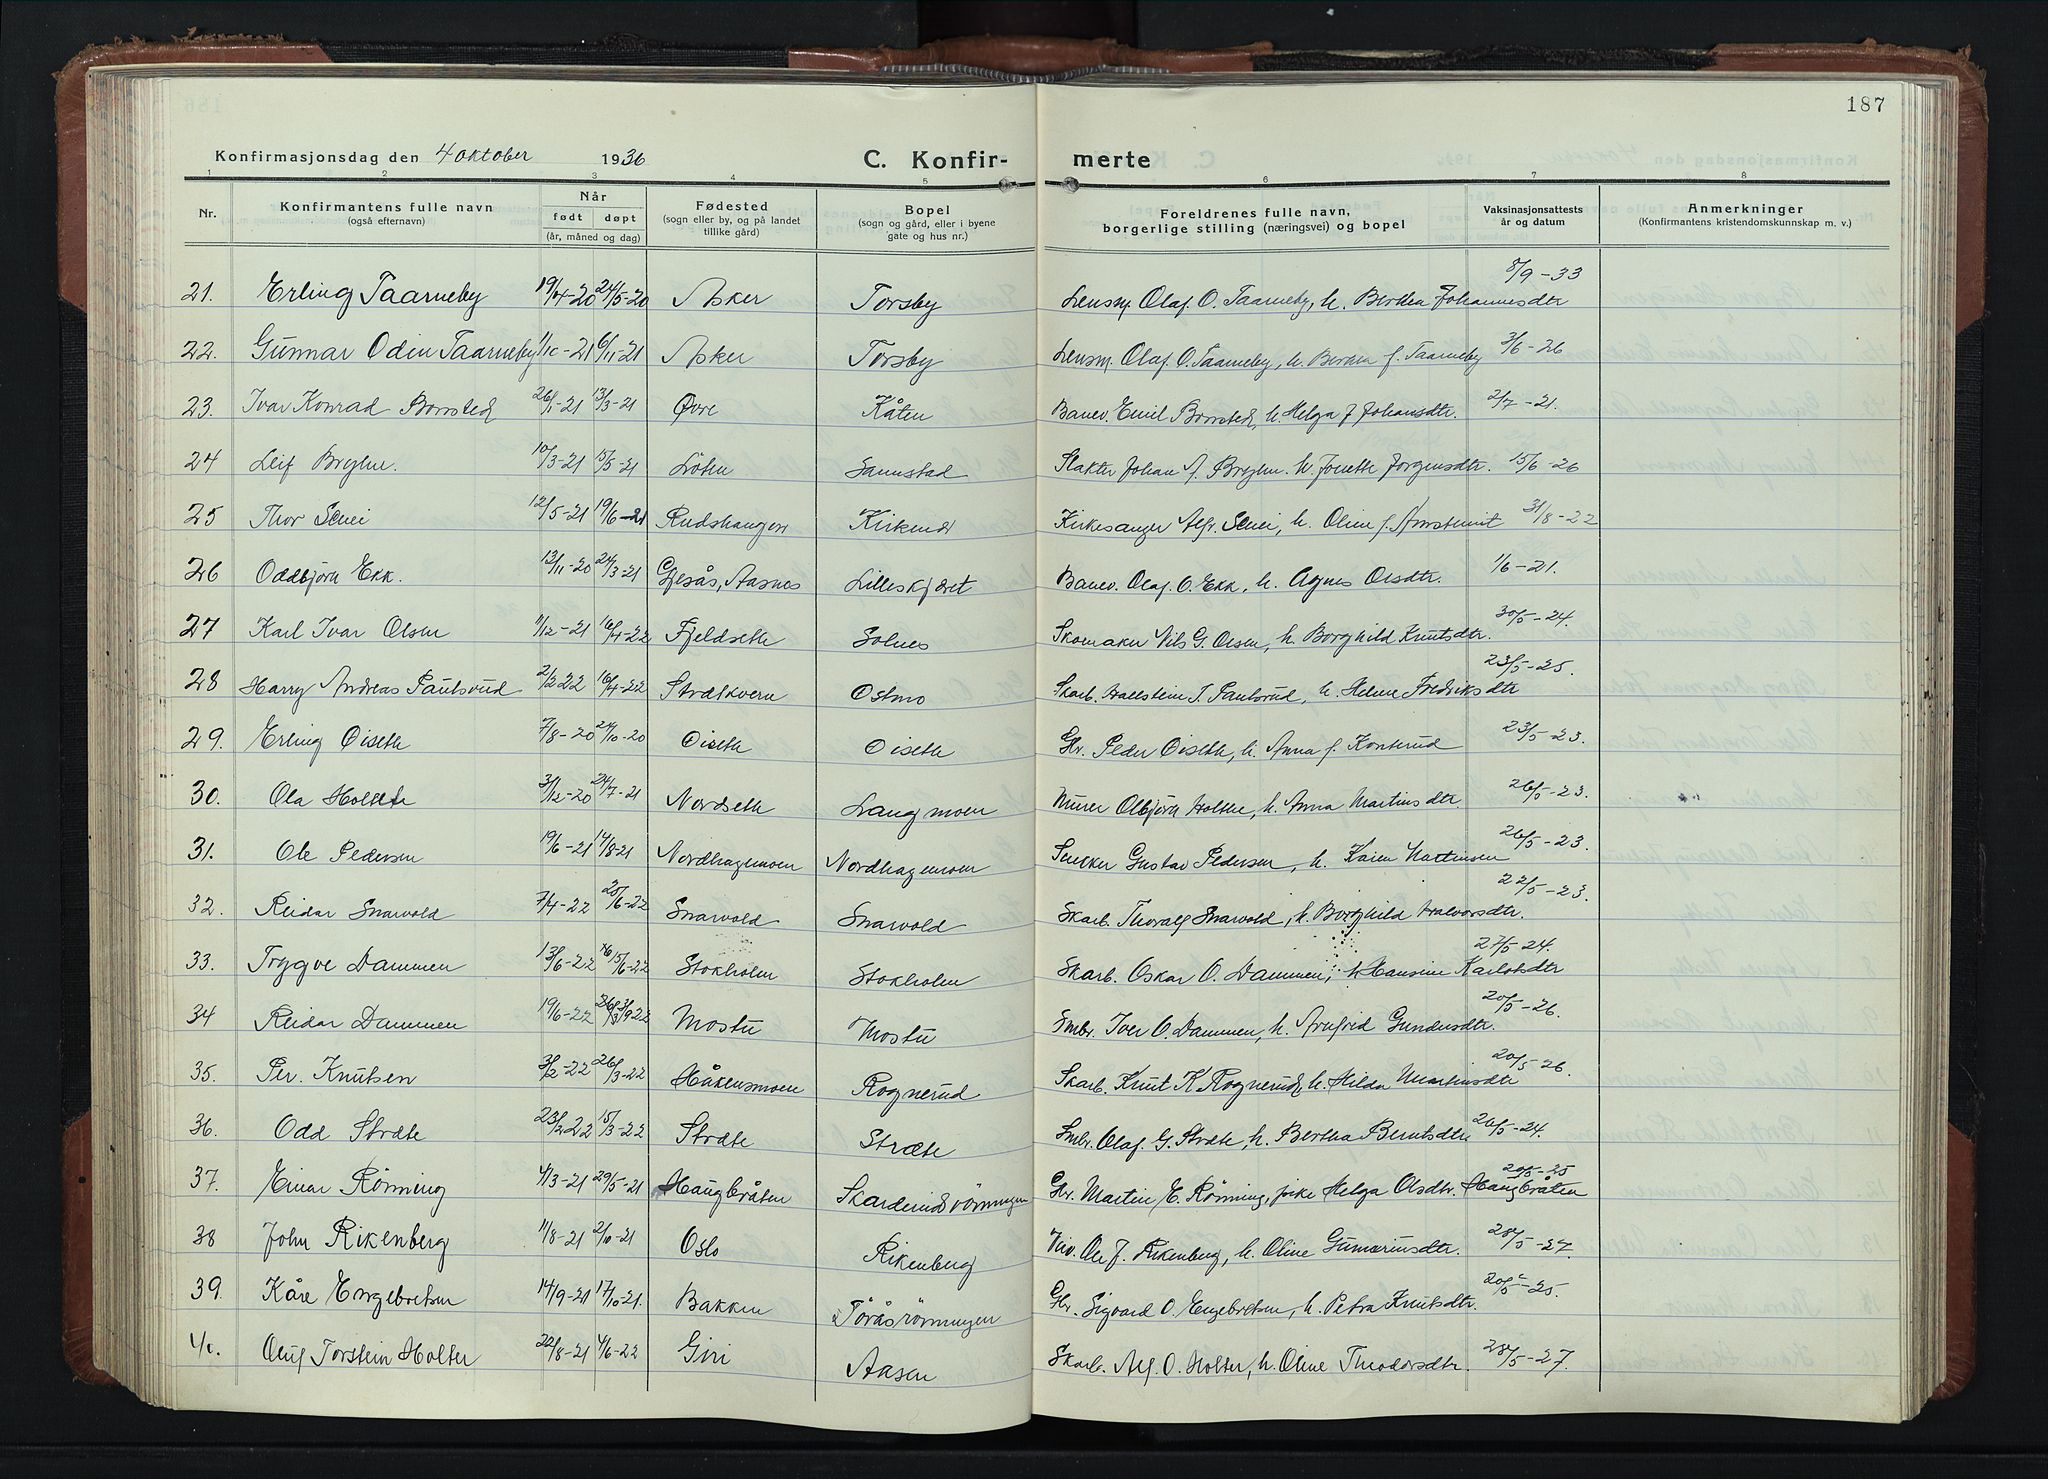 187
Konfirmasjonsdag den 4 oktober 1936 C. Konfir- merte
1 2 3 4 5 6 7 8
Nr. Konfirmantens fulle navn (også efternavn) Når født døpt (år, måned og dag) Fødested (sogn eller by, og på landet tillike gård) Bopel (sogn og gård, eller i byene gate og hus nr.) Foreldrenes fulle navn, borgerlige stilling (næringsvei) og bopel Vaksinasjonsattests år og datum Anmerkninger (Konfirmantens kristendomskunnskap m. v.)
21. Erling Taarneby 19/4-20 24/5-20 Asker Torsby Lensm. Olaf O. Taarneby, h. Berthea Johannesdtr 8/9-33
22. Gunnar Odin Taarneby 1/10-21 6/11-21 Asker Torsby Lensm. Olaf O. Taarneby, h. Berthea f. Taarneby 3/6-26
23. Ivar Konrad 26/1-21 13/3-21 Øvre Kåten Banev. Emil h. Helga J Johansdtr. 2/7-21.
24 Leif Bryhn. 10/3-21 15/5-21 Löten Sannstad Slakter Johan A. Bryhn. h. Jorgensdtr. 15/6-26
25 Thor 12/5-21 19/6-21 Rudshaugen Kirkesanger Alfr. h. Oline f. 31/8-22
26 Oddbjörn Ekk. 13/11-20 24/3-21 Gjesås, Aasnes Lilleskjæret Banev. Olaf. O. Ekk, h. Agnes Olsdtr. 1/6-21.
27 Karl Ivar Olsen 11/12-21 16/4-22 Fjeldseth Solnes Skomaker Nils G. Olsen, h. Borghild Knutsdtr. 30/5-24.
28 Harry Andreas Paulsrud 2/2 22 16/4-22 Strætkvern Ostmo Skarb. Hallstein J. Paulsrud, h. Helene Fredriksdtr 23/5-25.
29. Erling Oiseth 7/8-20 24/10-20 Oiseth Oiseth Gbr. Peder Oiseth, h. Anna f. Konterud 23/5-23.
30. Ola Holthe 3/12-20 24/7-21 Nordseth Langmoen Murer Olbjörn Holthe, h. Anna Martinsdtr. 26/5-23.
31. Ole Pedersen 19/6-21 14/8-21 Nordhagenmoen Nordhagenmoen Snekker Gustav Pedersen, h. Karen Martinsen 26/5-23.
32. Reidar Snarvold 7/4-22 25/6-22 Snarvold Snarvold Skarb. Thoralf Snarvold, h. Borghild Halvorsdtr. 22/5-23.
33. Trygve Dammen 13/6-22 15/6-22 Stokholm Stokholm Skarb. Oskar O. Dammen, h Hansine Karlotsdtr 27/5-24.
34 Reidar Dammen 19/6-22 3/9 22 Mostu Mostu Smbr. Iver O. Dammen, h. Arnfrid Gundersdtr. 20/5-26.
35. Per. Knutsen 3/2-22 26/3-22 Håkensmoen Rognerud Skarb. Knut K Rognerud, h. Hilda Martinsdtr 20/5-26.
36. Odd Stræte 23/2 22 15/3-22 Stræte Stræte Smbr. Olaf. G. Stræte, h. Bertha Berntsdtr 26/5-24.
37. Einar Rönning 4/3-21 29/5-21 Haugbråten Skarderudsrönningen Gbr. Martin E. Rönning, pike Helga Olsdtr. Haugbråten 20/5-25
38 John Rikenberg 11/8-21 2/10-21 Oslo Rikenberg Ole J. Rikenberg, h. Oline Gunneriusdtr. 28/5-27.
39. Kåre Engebretsen 14/9-21 17/10-21. Bakken Töråsrönningen Gbr. Sigvard O. Engebretsen, h. Petra Knutsdtr. 20/5-25.
40. Oluf Torstein Holter 22/8-21 4/6-22 Giri Aasen Skarb. Alf. O. Holter, h. Oline Theodorsdtr. 28/5-27.